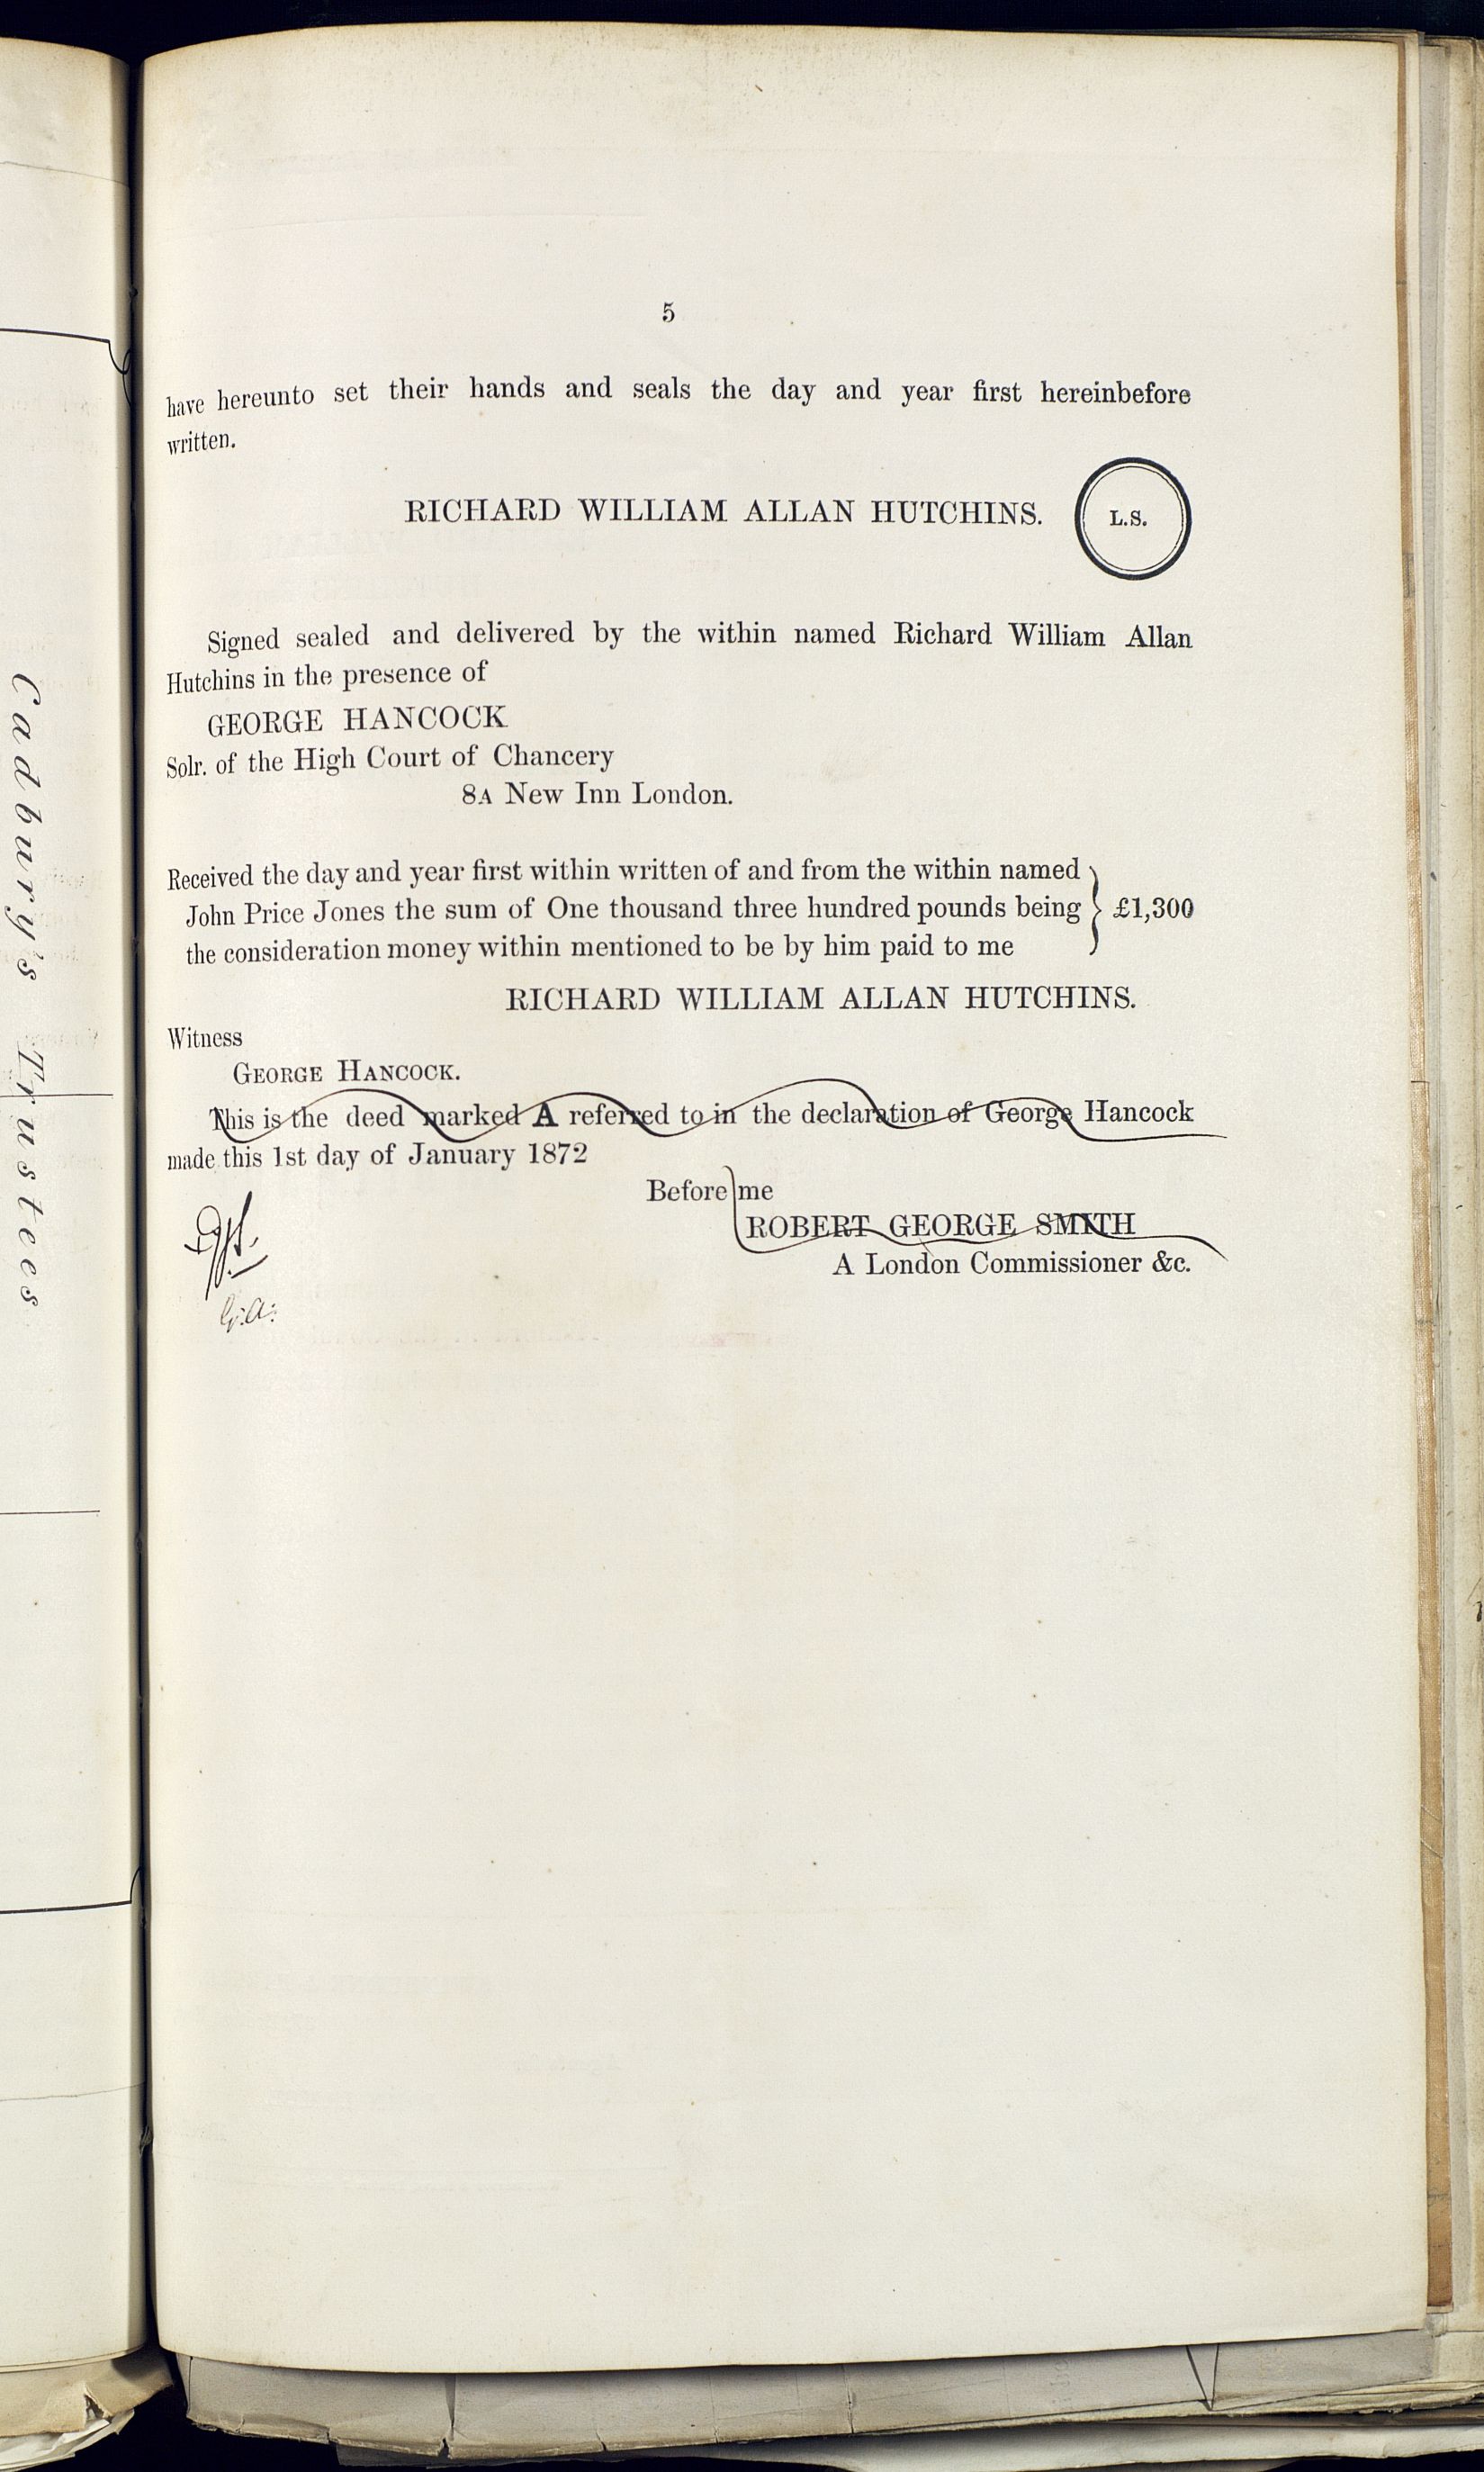 5
have hereunto set their hands and seals the day and year first hereinbefore
written.
RICHARD WILLIAM ALLAN HUTCHINS. L.S.
Signed sealed and delivered by the within named Richard William Allan
Hutchins in the presence of
GEORGE HANCOCK
Solr. of the High Court of Chancery
8A New Inn London.
Received the day and year first within written of and from the within named
John Price Jones the sum of One thousand three hundred pounds being £1,300
the consideration money within mentioned to be by him paid to me
RICHARD WILLIAM ALLAN HUTCHINS.
Witness
GEORGE HANCOCK.
This is the deed marked A referred to in the declaration of George Hancock
made this 1st day of January 1872
Before me
ROBERT GEORGE SMITH
A London Commissioner &c.
G.A:
Cadbury's Trustees